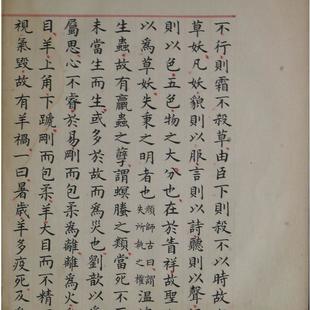 不行則霜不殺草由臣下則殺不以時故
草妖凡妖貌則以服言則以詩聽則以聲
則以色五色物之大分也在於眚祥故聖
以爲草妖失秉之明者也顏師古曰謂失所執之權温
生蟲故有蠃蟲之孽謂螟螣之類當死不
未當生而生或多於故而爲災也劉歆以
屬思心不睿於易剛而包柔爲離離爲火
目羊上角下蹏剛而包柔羊大目而不精
視氣毀故有羊禍一曰暑歲羊多疫死及